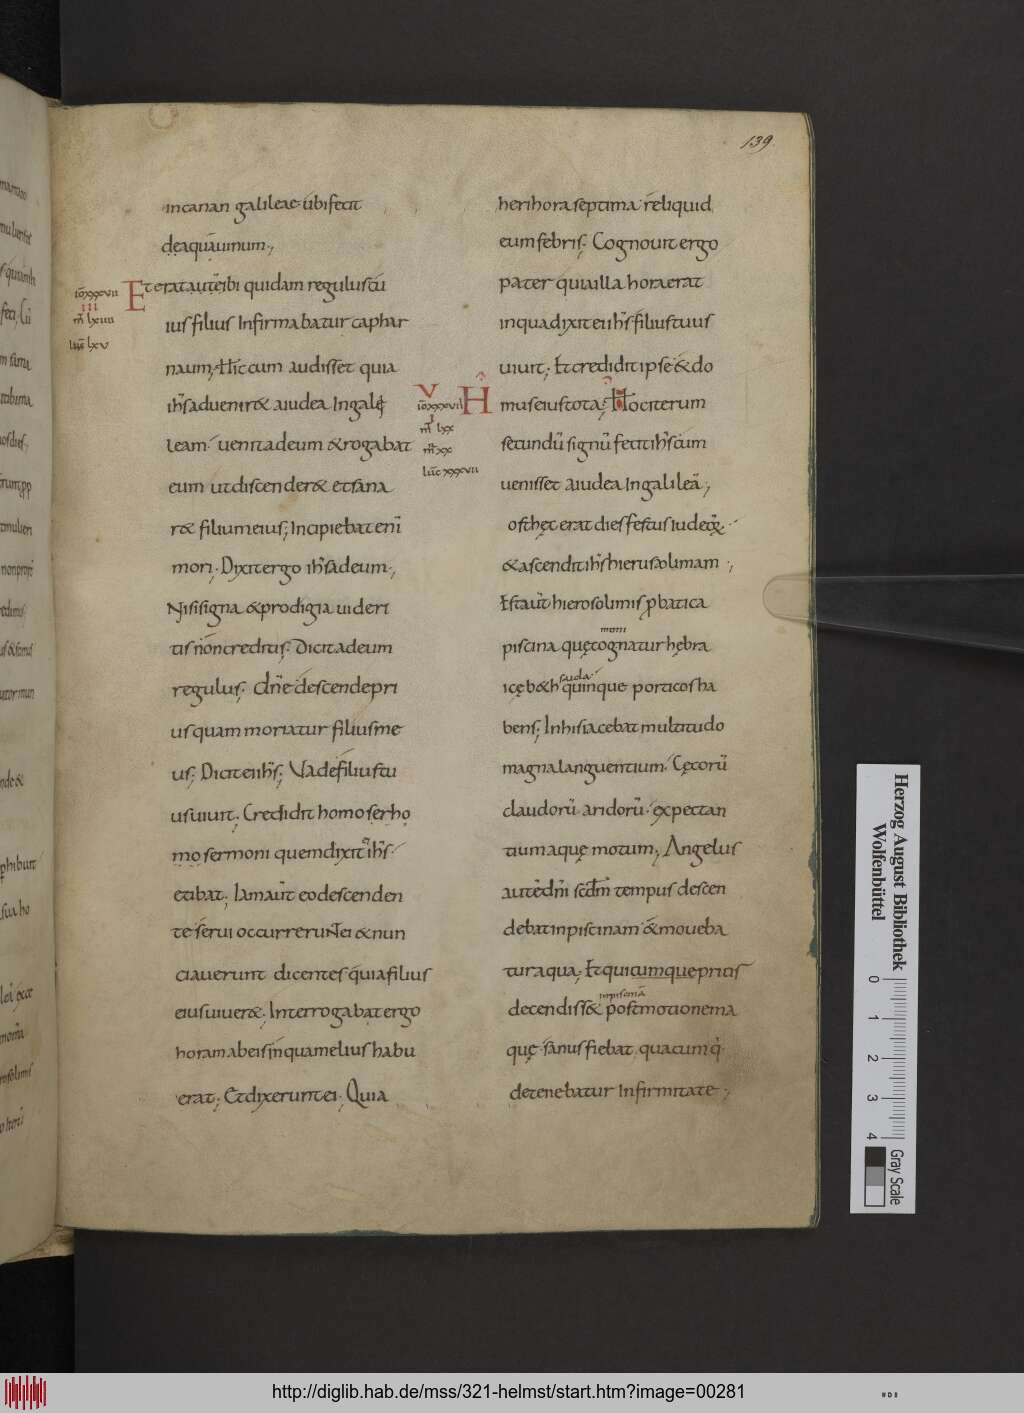 139
in canan galileae ubi fecit
de aqua uinum;
Et erat aūt ibi quidam regulus cū
ius filius Infirmabatur caphar
naum; Hic cum audisset quia
ihs adueniret a iudea In gali
leam uenit ad eum & rogabat
eum ut discender& et sana
r& filium eius; Incipiebat enī
mori. Dixit ergo ihs ad eum;
Nisi signa & prodigia uideri
tis non creditis; Dicit ad eum
regulus; dn̄e descende pri
us quam moriatur filius me
us; Dicit ei ihs; Vade filius tu
us uiuit; Credidit homo ser ho
mo sermoni quem dixit ihs
et ibat; Iam aūt eo descenden
te serui occurrerunt ei & nun
ciauerunt dicentes quia filius
eius uiuer&; Interrogabat ergo
horam ab eis in qua melius habu
erat; Et dixerunt ei; Quia
iō xxxvii
iii
m̄ lxuii
luc̄ lxv
heri hora septima reliquid
eum febris; Cognouit ergo
pater quia illa hora erat
in qua dixit ei ihs filius tuus
uiuit; Et credidit ipse & do
mus eius tota; Hoc iterum
secundū signū fecit ihs cum
uenisset a iudea In galileā;
V
iō xxxvii
H
I
m̄ lxx
mr̄ xx
luc̄ xxxvii
ost hęc erat dies festus iudeoꝝ
& ascendit ihs hierusolimam;
Est aūt hierosolimis ꝓbatica
piscina quę cognatur hębra
moni
icę b&h quinque porticos ha
saida
bens; In his iacebat multitudo
magna languentium. Cęcorū
claudorū aridorū expectan
tium aquę motum; Angelus
autē dn̄i scdm̄ tempus descen
debat in piscinam & moueba
tur aqua; Et qui cumque prius
decendiss& post motionem a
in piscinā
quę sanus fiebat quacumq̄
detenebatur Infirmitate;
Herzog August Bibliothek
Wolfenbüttel
0 1 2 3 4
Gray Scale
http://diglib.hab.de/mss/321-helmst/start.htm?image=00281